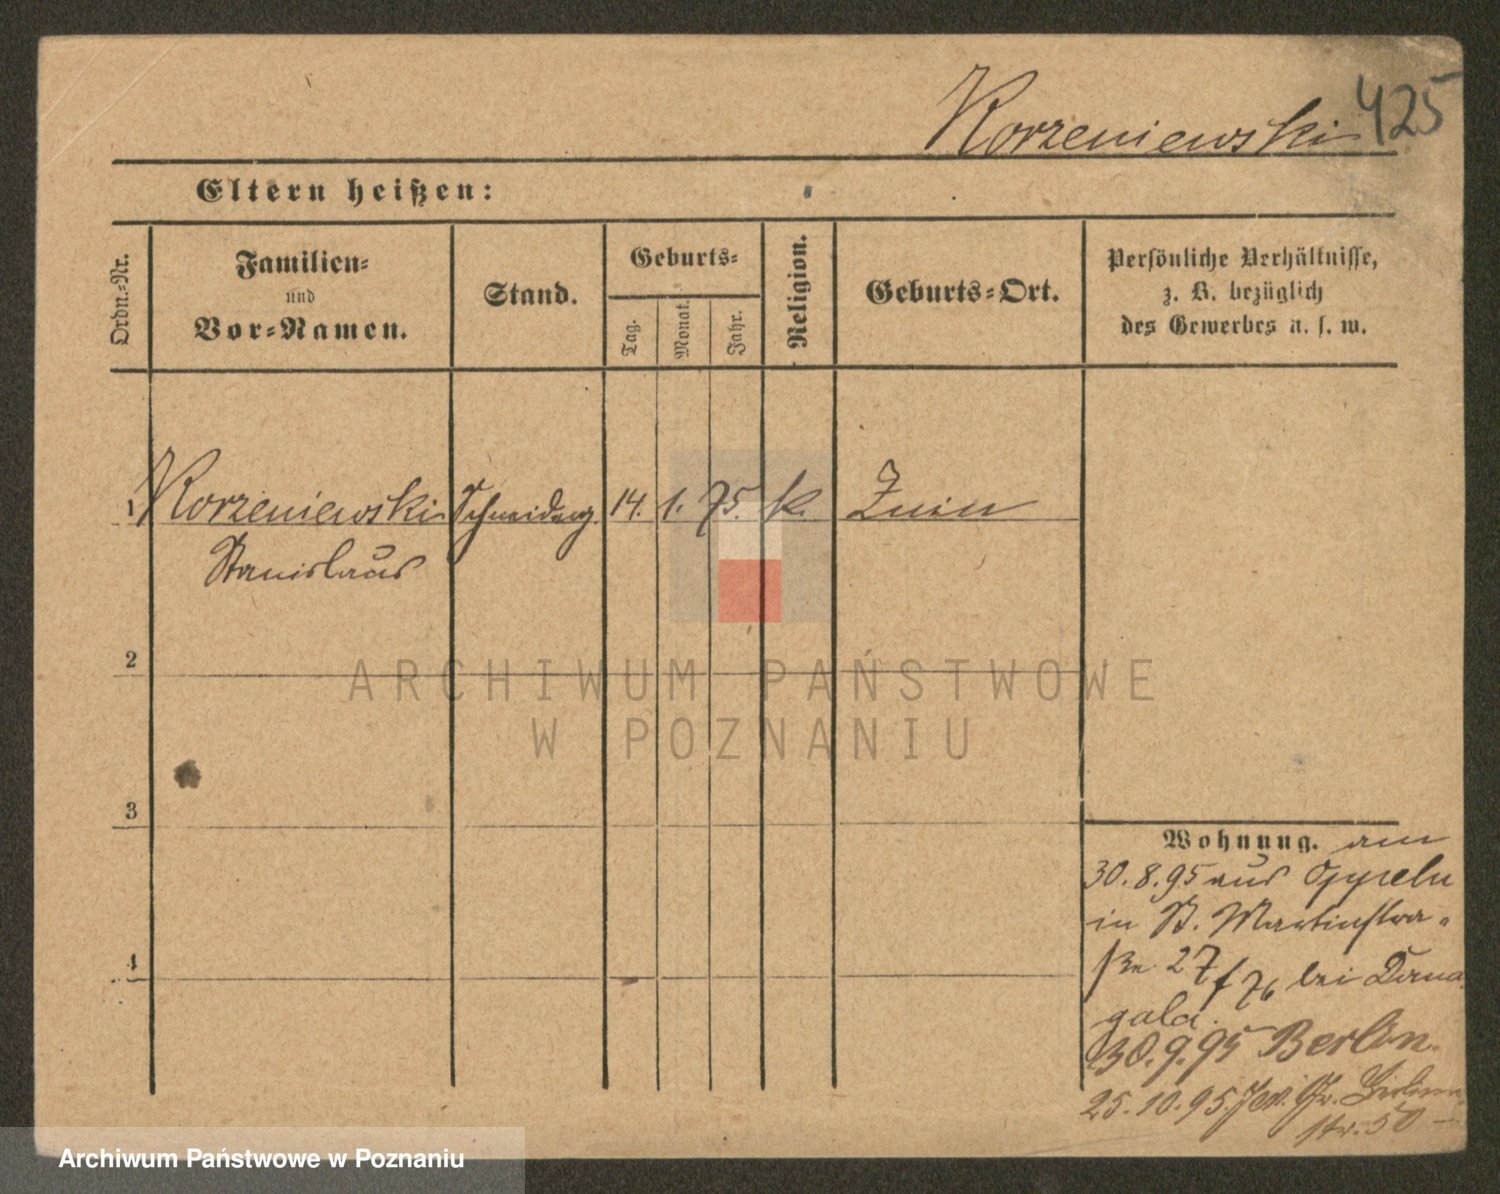 Korzeniewski 425
Eltern heißen:
Ordn.-Nr.
Familien-
und
Vor-Namen.
Stand.
Geburts-
Tag.
Monat.
Jahr.
Religion.
Geburts-Ort.
Persönliche Verhältnisse,
z. B. bezüglich
des Gewerbes u. s. w.
1 Korzeniewski Schneiderg. 14. 1. 75. k. Znin
Stanislaus
2
ARCHIWUM PAŃSTWOWE
W POZNANIU
3
4
Wohnung. am
30.8.95 aus Oppeln
in St. Martinstra-
ße 27 bei
30.9.95 Berlin.
25.10.95.
str. 50
Archiwum Państwowe w Poznaniu